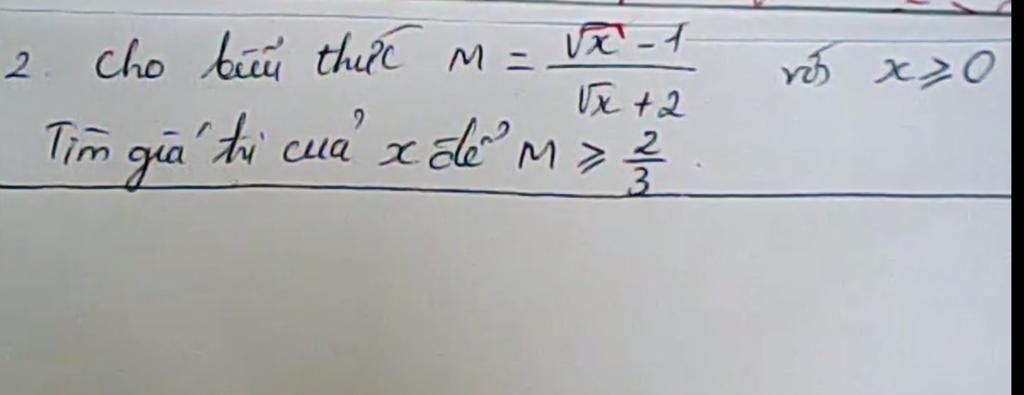 2. Cho biểu thức M = \frac{\sqrt{x} - 1}{\sqrt{x} + 2} với x ≥ 0
Tìm giá trị của x để M ≥ \frac{2}{3}.